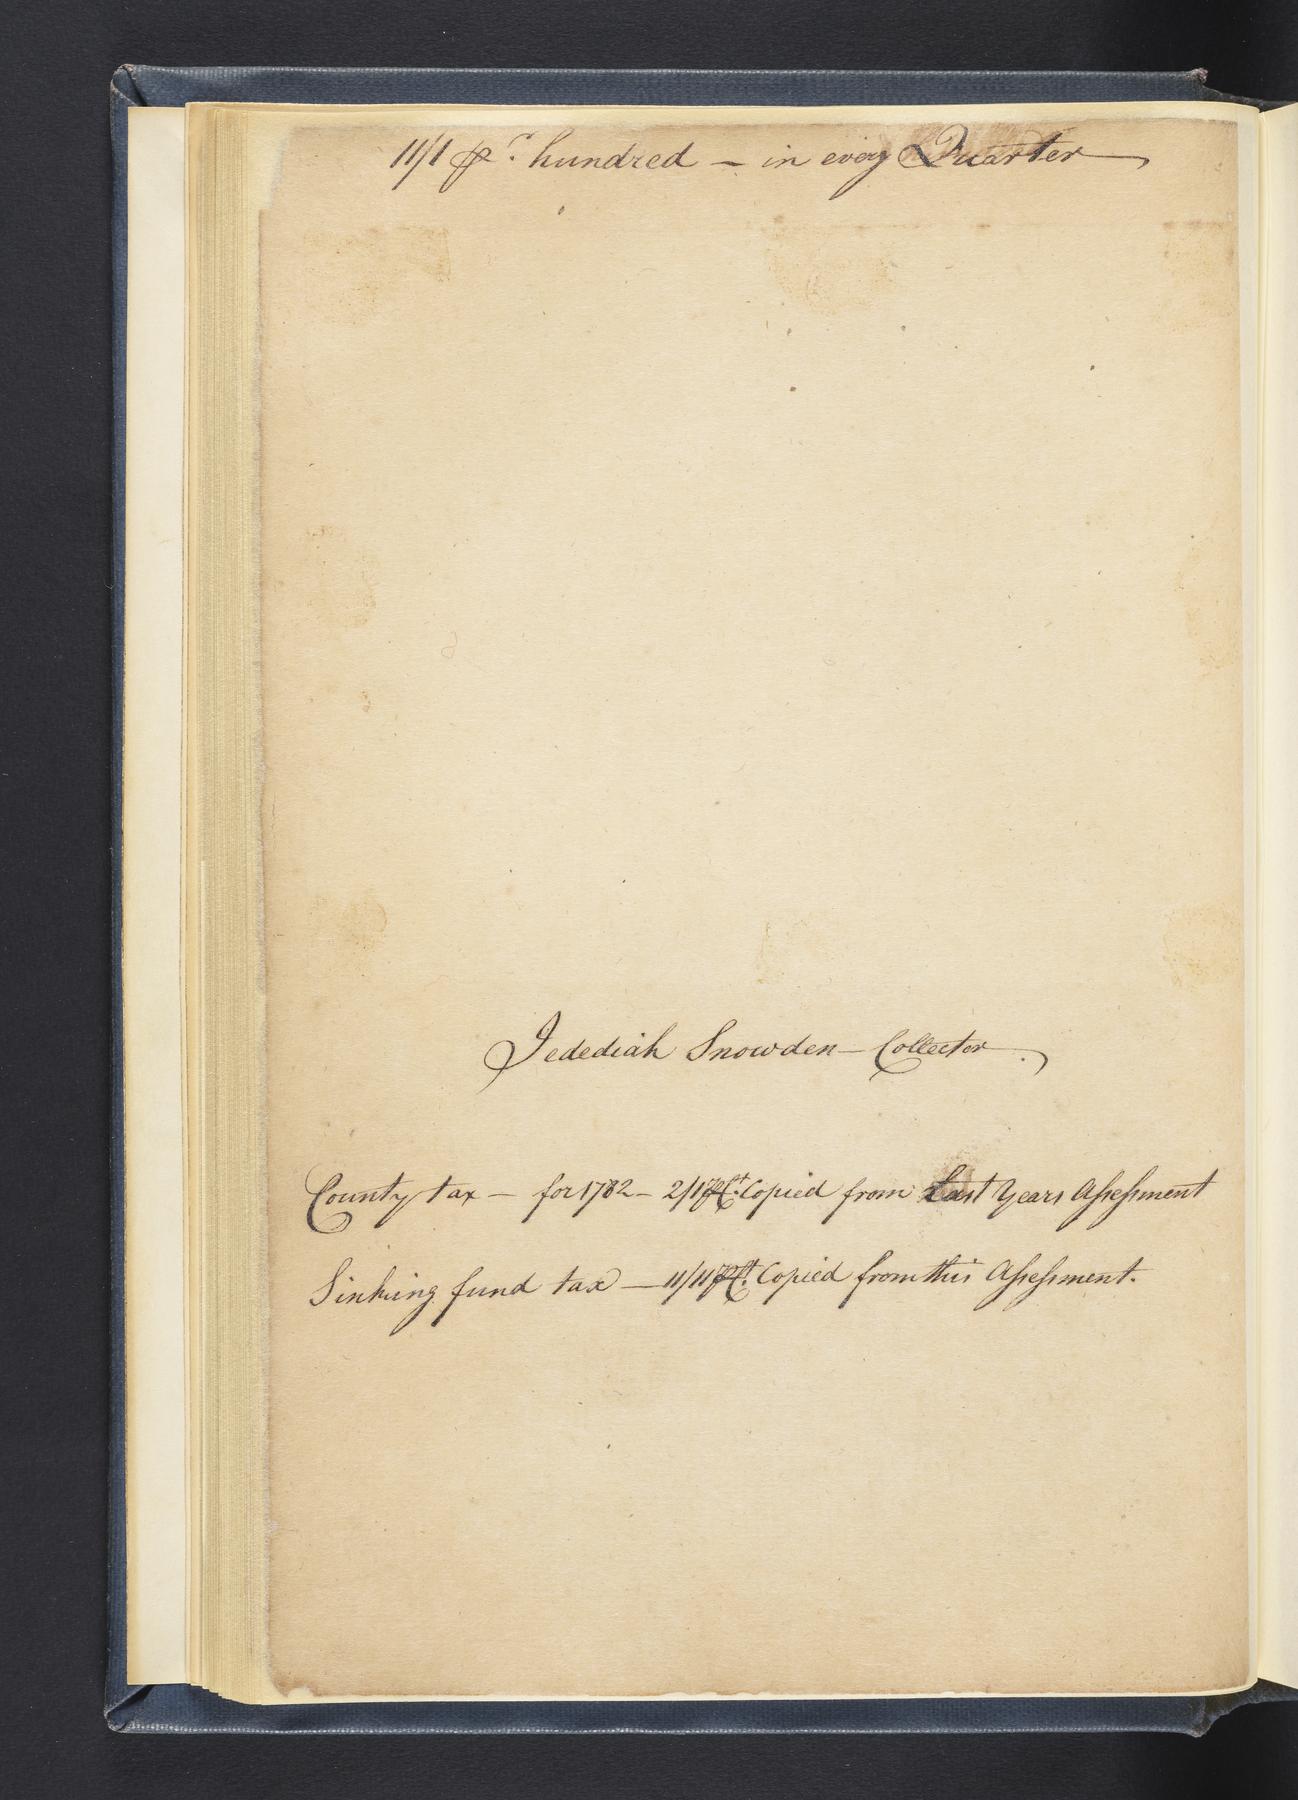 11/1 pr. hundred – in every Quarter
Jedediah Snowden – Collector.
County tax – for 1782 – 2/1 p Ct. Copied from Last Years Assessment
Sinking fund tax – 11/11 p Ct. Copied from this Assessment.